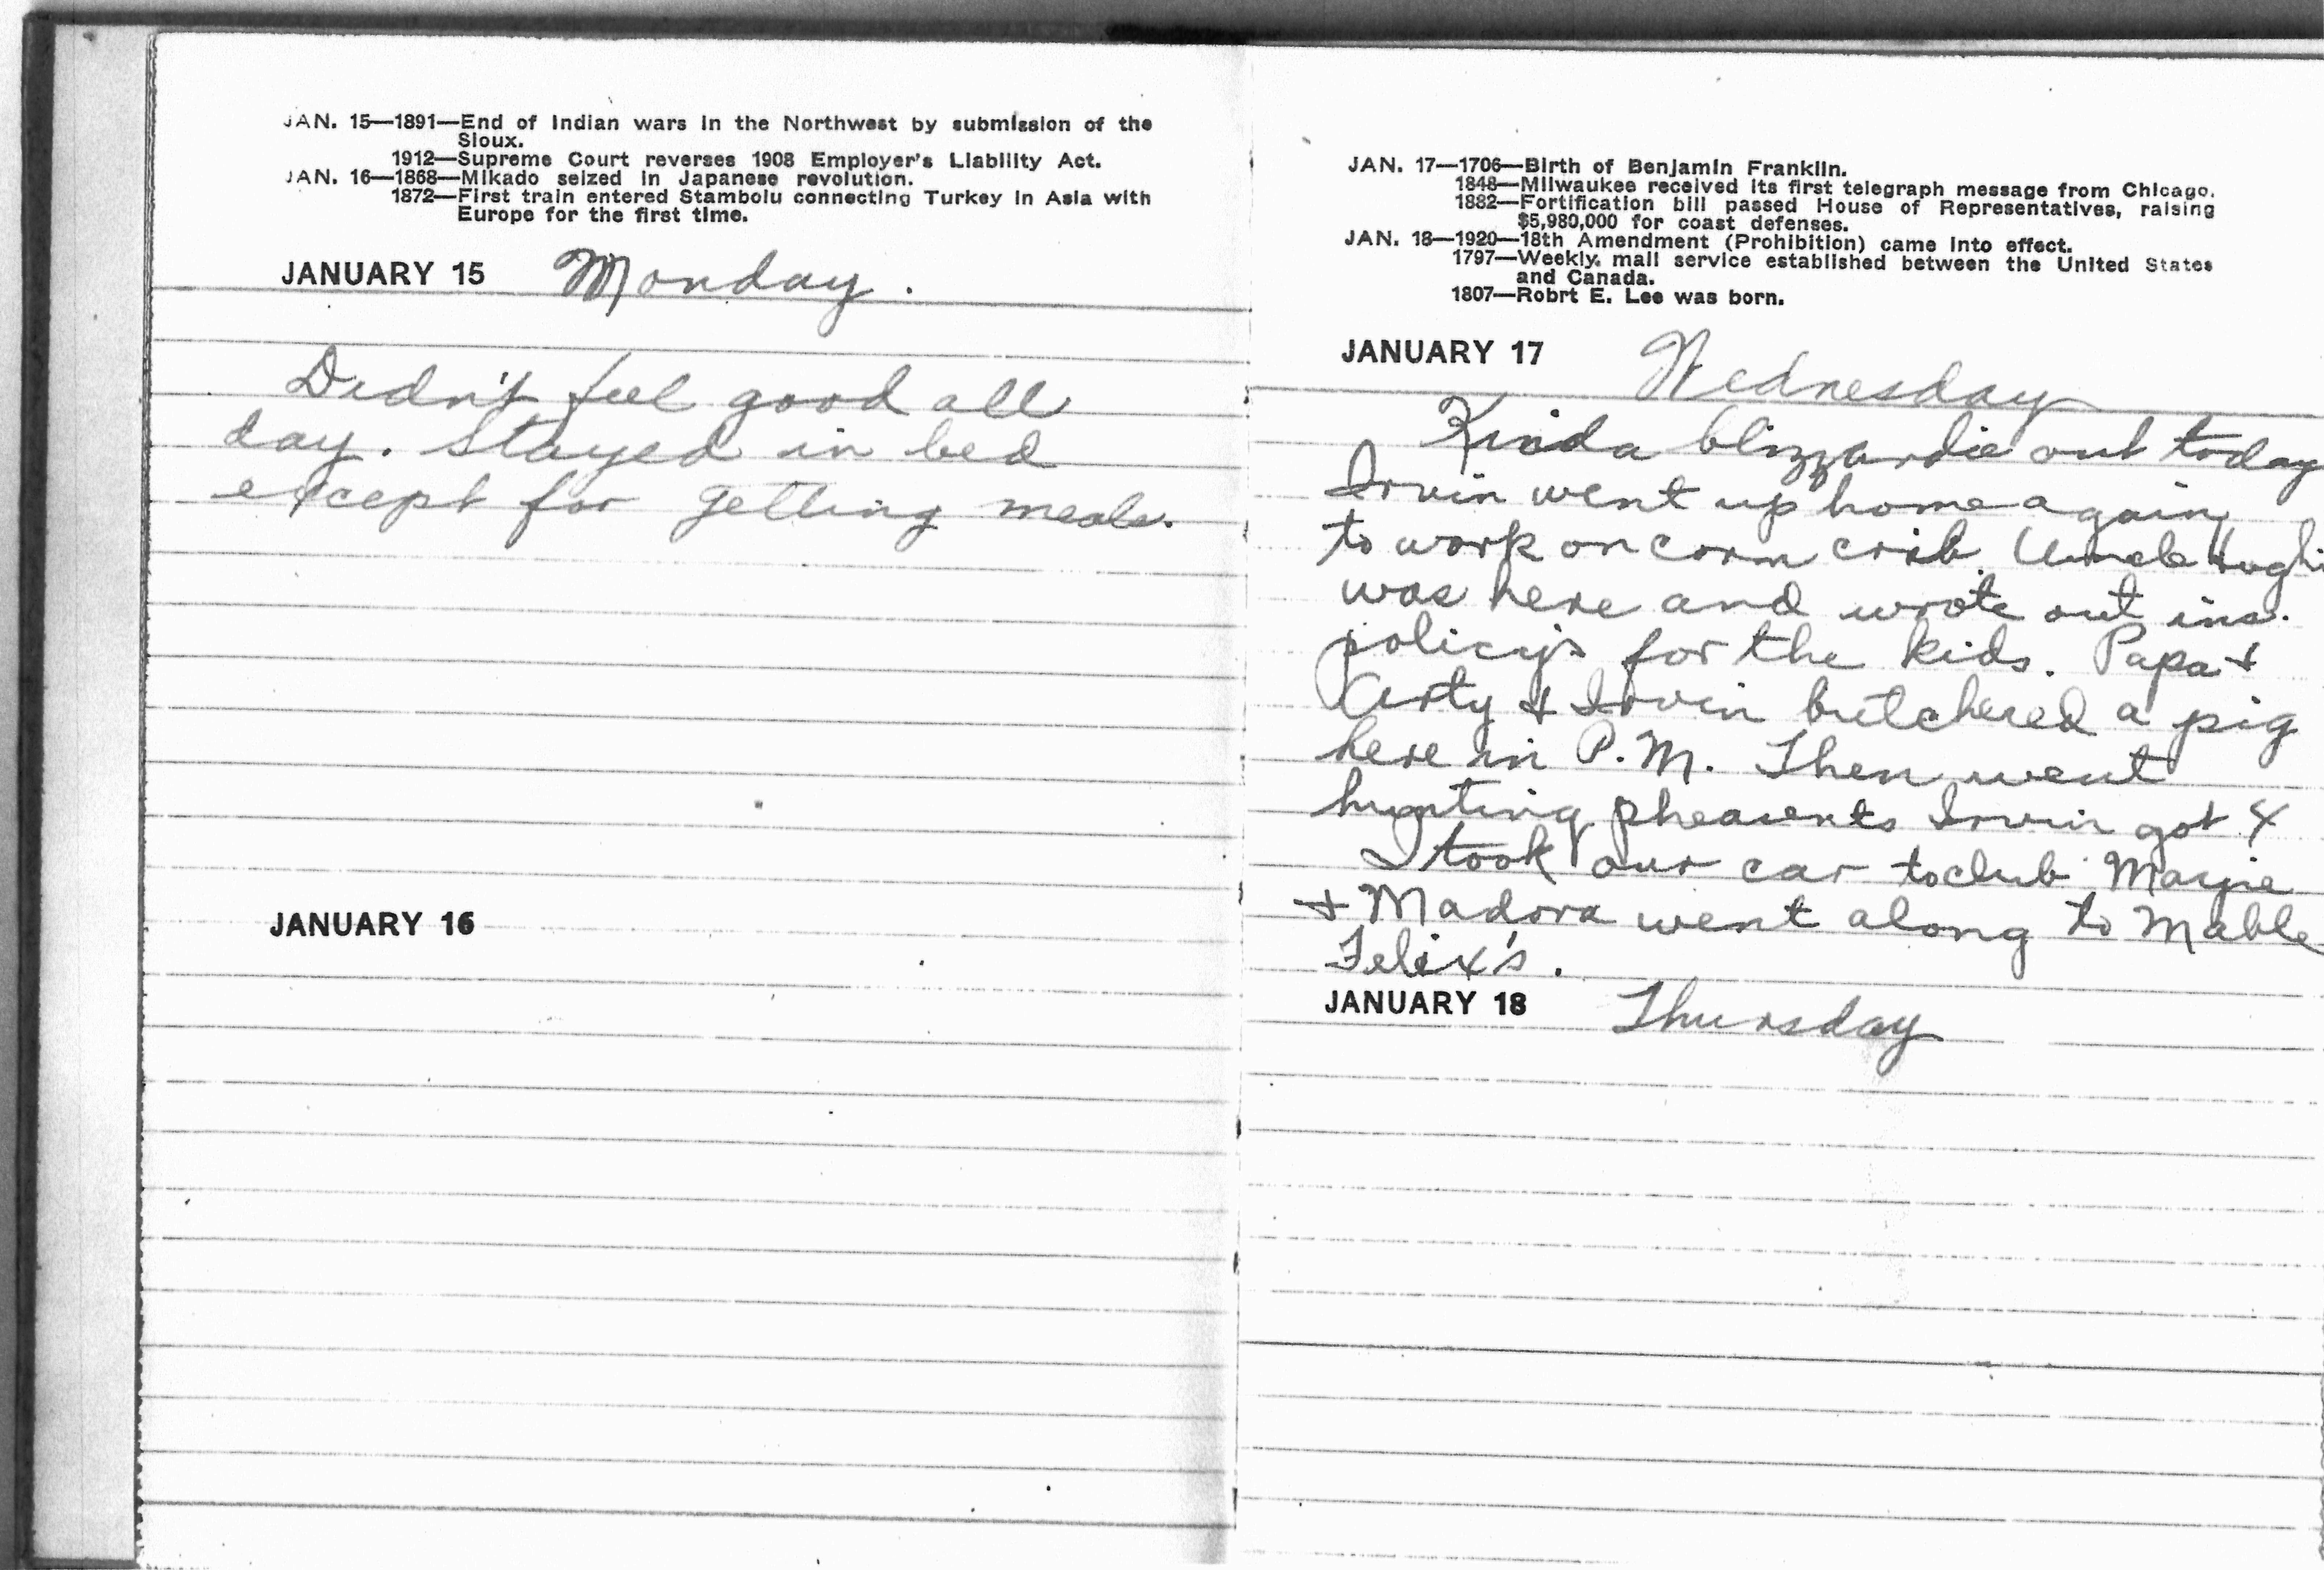 JAN. 15—1891—End of Indian wars in the Northwest by submission of the
Sioux.
1912—Supreme Court reverses 1908 Employer's Liability Act.
JAN. 16—1868—Mikado seized in Japanese revolution.
1872—First train entered Stambolu connecting Turkey in Asia with
Europe for the first time.
JANUARY 15 Monday.
Didn't feel good all
day. Stayed in bed
except for getting meals.
JANUARY 16
JAN. 17—1706—Birth of Benjamin Franklin.
1848—Milwaukee received its first telegraph message from Chicago.
1882—Fortification bill passed House of Representatives, raising
$5,980,000 for coast defenses.
JAN. 18—1920—18th Amendment (Prohibition) came into effect.
1797—Weekly mail service established between the United States
and Canada.
1807—Robrt E. Lee was born.
JANUARY 17 Wednesday
Kinda blizzardie out today
Irvin went up home again
to work on corn crib. Uncle Hughi
was here and wrote out ins.
policy's for the kids. Papa +
Arty + Irvin butchered a pig
here in P.M. Then went
hunting pheasents Irvin got 4
I took our car to club Marjie
+ Madora went along to Mable
Felix's.
JANUARY 18 Thursday